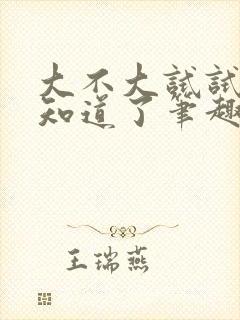 大不大试试
知道了笔趣
王瑞燕